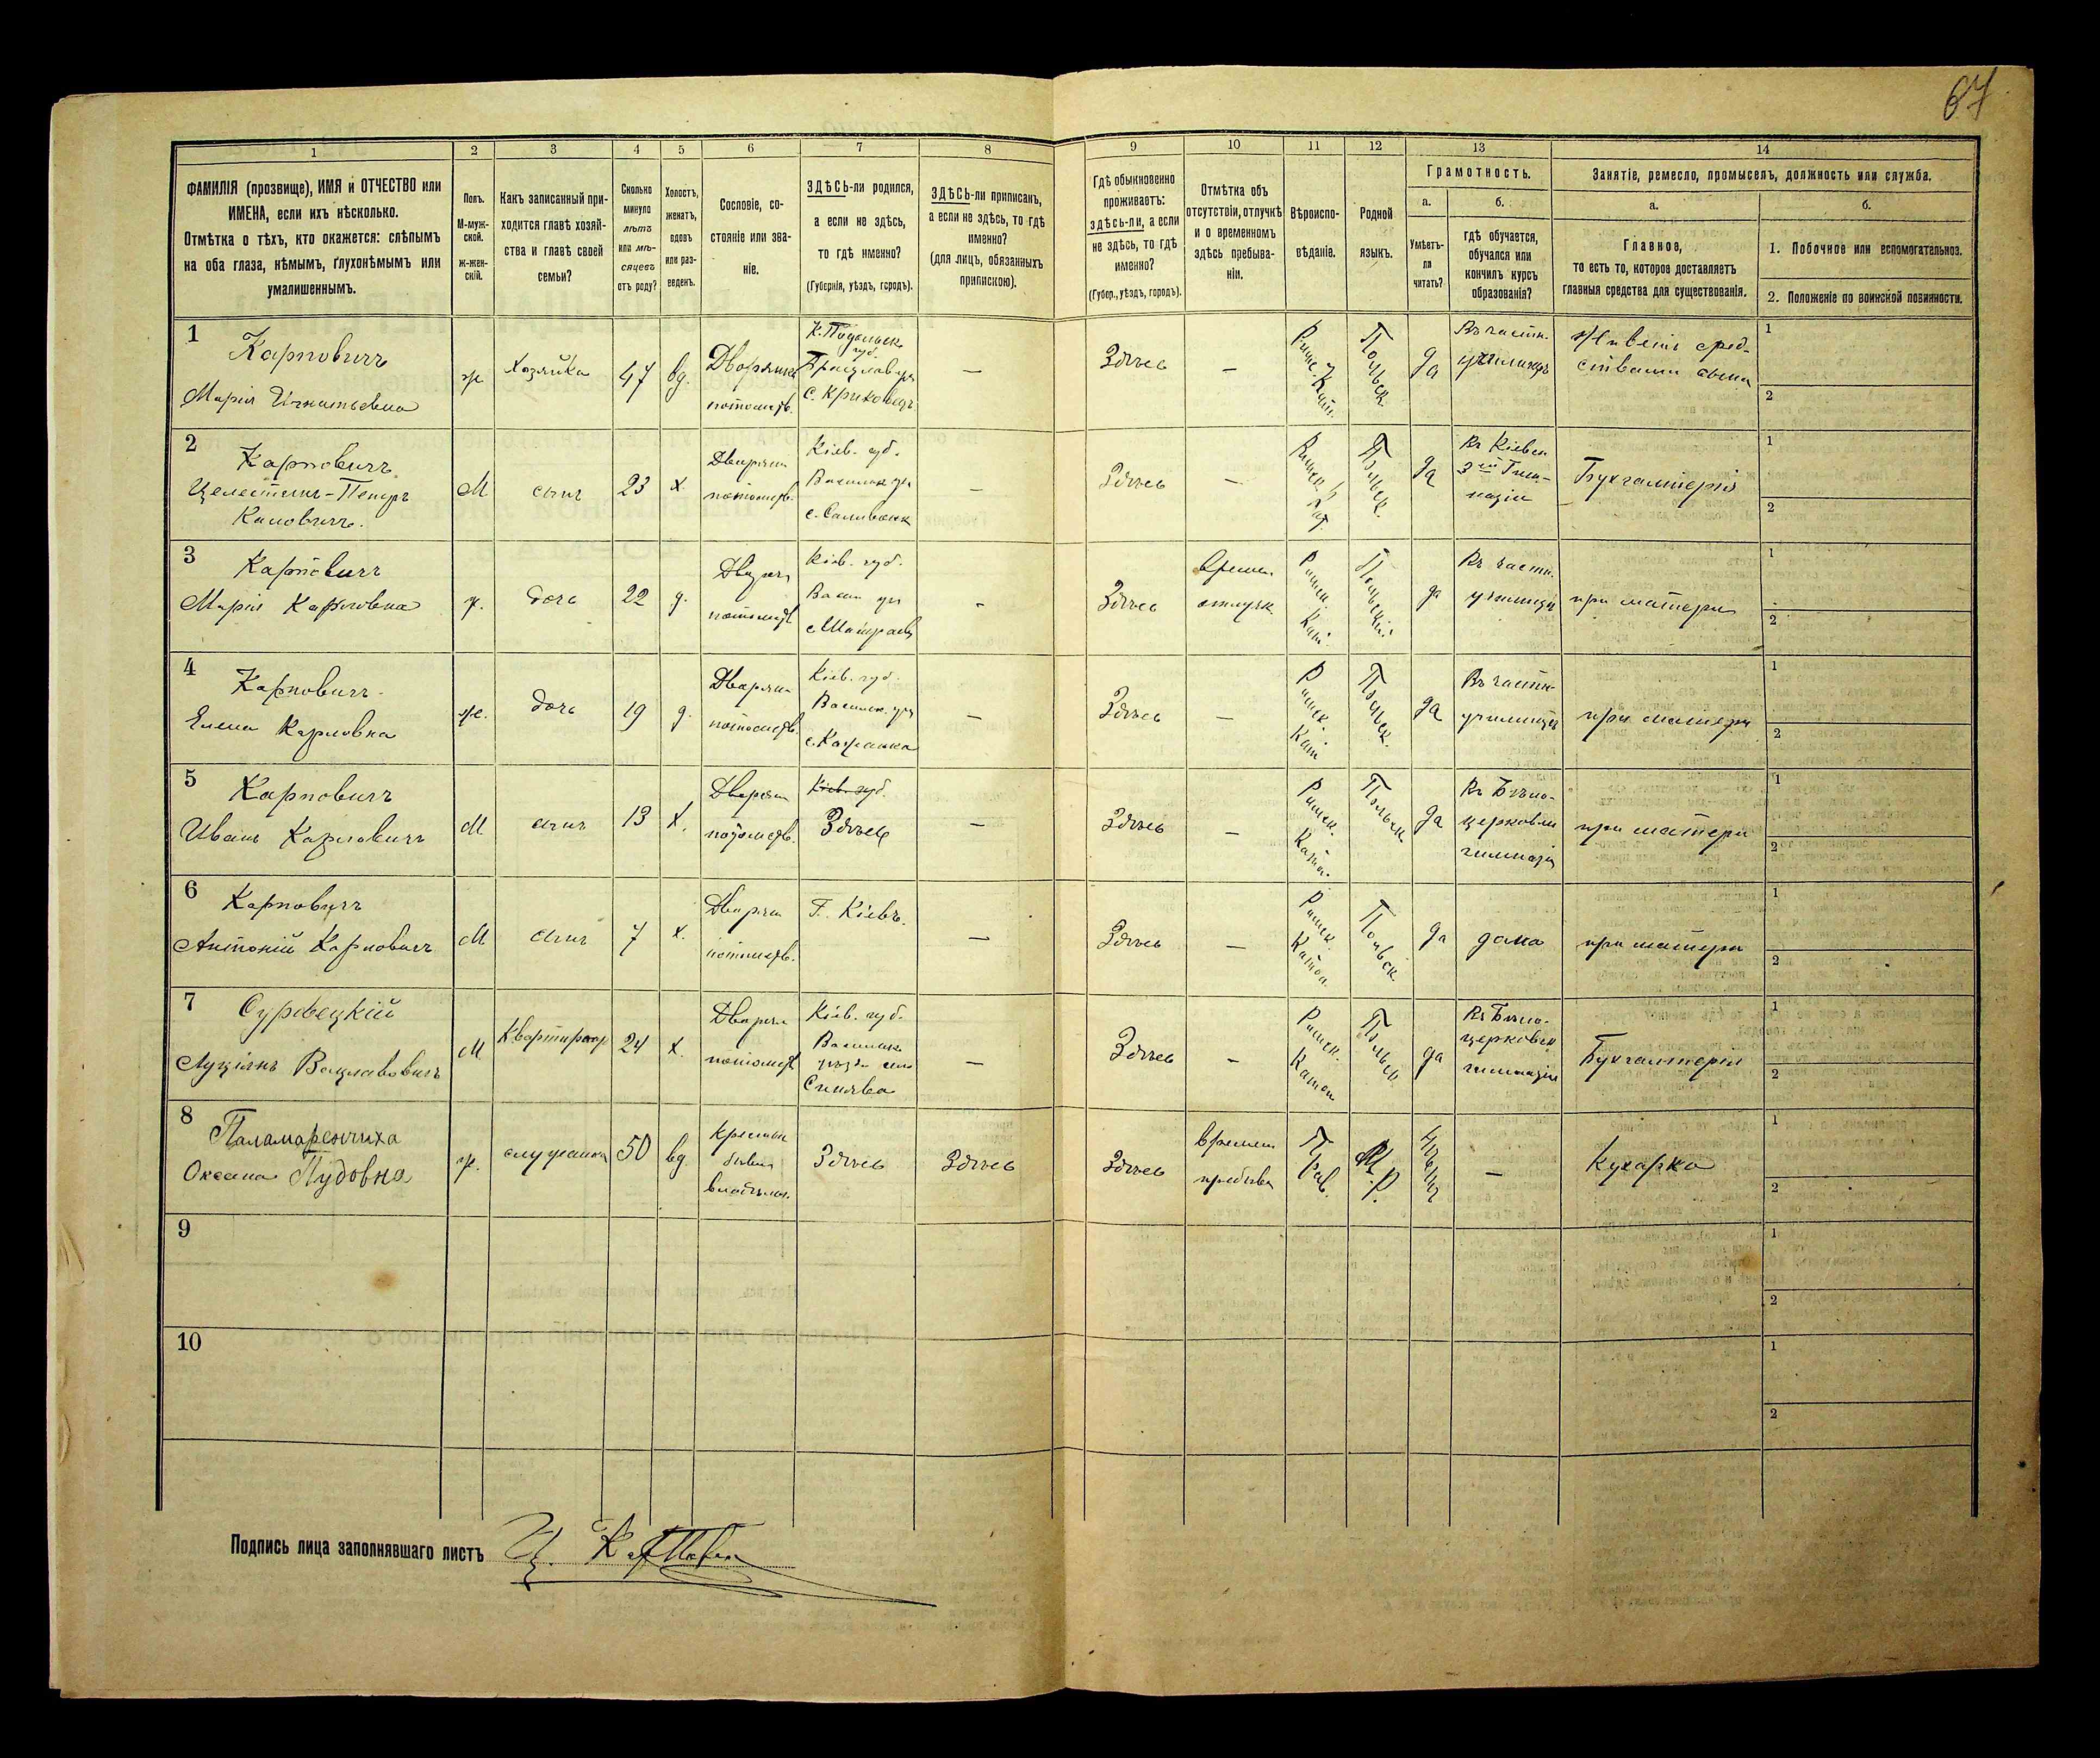 67
1
2
3
4
5
6
7
8
9
10
11
12
13
14
ФАМИЛІЯ (прозвище), ИМЯ и ОТЧЕСТВО или
ИМЕНА, если ихъ нѣсколько.
Отмѣтка о тѣхъ, кто окажется: слѣпымъ
на оба глаза, нѣмымъ, глухонѣмымъ или
умалишеннымъ.
Полъ.
М-муж-
ской.
Ж-жен-
скій.
Какъ записанный при-
ходится главѣ хозяй-
ства и главѣ своей
семьи?
Сколько
минуло
лѣтъ
или мѣ-
сяцевъ
отъ роду?
Холостъ,
женатъ,
вдовъ
или раз-
веденъ.
Сословіе, со-
стояніе или зва-
ніе.
ЗДѢСЬ-ли родился,
а если не здѣсь,
то гдѣ именно?
(Губернія, уѣздъ, городъ).
ЗДѢСЬ-ли приписанъ,
а если не здѣсь, то гдѣ
именно?
(для лицъ, обязанныхъ
припискою).
Гдѣ обыкновенно
проживаетъ:
здѣсь-ли, а если
не здѣсь, то гдѣ
именно?
(Губер., уѣздъ, городъ).
Отмѣтка объ
отсутствіи, отлучкѣ
и о временномъ
здѣсь пребыва-
ніи.
Вѣроиспо-
вѣданіе.
Родной
языкъ.
Грамотность.
а.
Умѣетъ-
ли
читать?
б.
гдѣ обучается,
обучался или
кончилъ курсъ
образованія?
Занятіе, ремесло, промыселъ, должность или служба.
а.
Главное,
то есть то, которое доставляетъ
главныя средства для существованія.
б.
1. Побочное или вспомогательное.
2. Положеніе по воинской повинности.
1
Карповичъ
Марія Игнатьевна
ж
Хозяйка
47
вд.
Дворянка
потомств.
К. Подольск.
губ.
с. Криковецъ
—
Здѣсь
—
Римс. Кат.
Польск.
да
Въ частн.
училищѣ
Живетъ сред-
ствами сына
1
2
2
Карповичъ
Целестинъ-Петръ
М
сынъ
23
х
Дворян
потомств.
Кіев. губ.
—
Здѣсь
—
Польск.
да
Въ Кіевск
3ей Гим-
назіи
Бухгалтерія
1
2
3
Карповичъ
Марія Карловна
ж.
дочь
22
д.
потомств
Кіев. губ.
-
Здѣсь
Времен
отлучк
Римск. Кат.
Польскій
да
Въ частн.
училищѣ
при матери
1
2
4
Карповичъ
Елена Карловна
ж.
дочь
19
д.
Дворян
потомств.
Кіев. губ.
с. Кожанка
—
Здѣсь
—
Римск. Кат
Польск.
да
Въ частн.
училищѣ
при матери
1
2
5
Карповичъ
Иванъ Карловичъ
М
сынъ
13
х.
Дворян
потомств.
Кіев. губ.
Здѣсь
—
Здѣсь
—
Римск. Като.
Польск
да
Въ Бѣло-
церковск
гимназіи
при матери
1
2
6
Карповичъ
Антоній Карловичъ
М
сынъ
7
х.
Дворян
потомств.
Г. Кіевъ.
—
Здѣсь
—
Римск. Катол
Польск
да
дома
при матери
1
2
7
Суровецкій
Луціянъ Вацлавовичъ
М
Квартирантъ
24
х.
Дворян
потомств
Кіев. губ.
Васильк
уѣзда село
Синява
—
Здѣсь
—
Римск. Катол
Польск
да
Въ Бѣло-
церковск
гимназіи
Бухгалтерія
1
2
8
Паламаренчиха
Оксана Пудовна
ж.
служанка
50
вд
Крестьян
бывш
владѣльч.
Здѣсь
Здѣсь
Здѣсь
времен
пребыв
Прав.
М. Р.
—
Кухарка
1
2
9
1
2
10
1
2
Подпись лица заполнявшаго листъ
Ц. Карпович